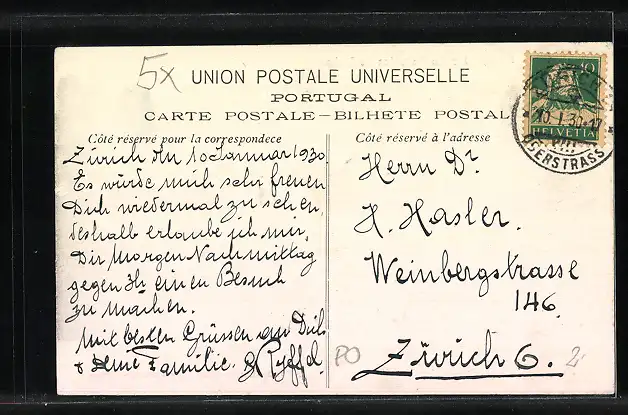 5x
UNION POSTALE UNIVERSELLE
PORTUGAL
CARTE POSTALE – BILHETE POSTAL
Côté réservé pour la correspondece
Zürich den 10 Januar 1930
Es würde mich sehr freuen
Dich wiedermal zu sehen,
deshalb erlaube ich mir,
Dir Morgen Nachmittag
gegen 3h einen Besuch
zu machen.
Mit besten Grüssen an Dich
& Deine Familie.
Côté réservé à l'adresse
Herrn Dr.
H. Hasler.
Weinbergstrasse
146.
Zürich 6.
PO
2
10
HELVETIA
10.I.30
VIII